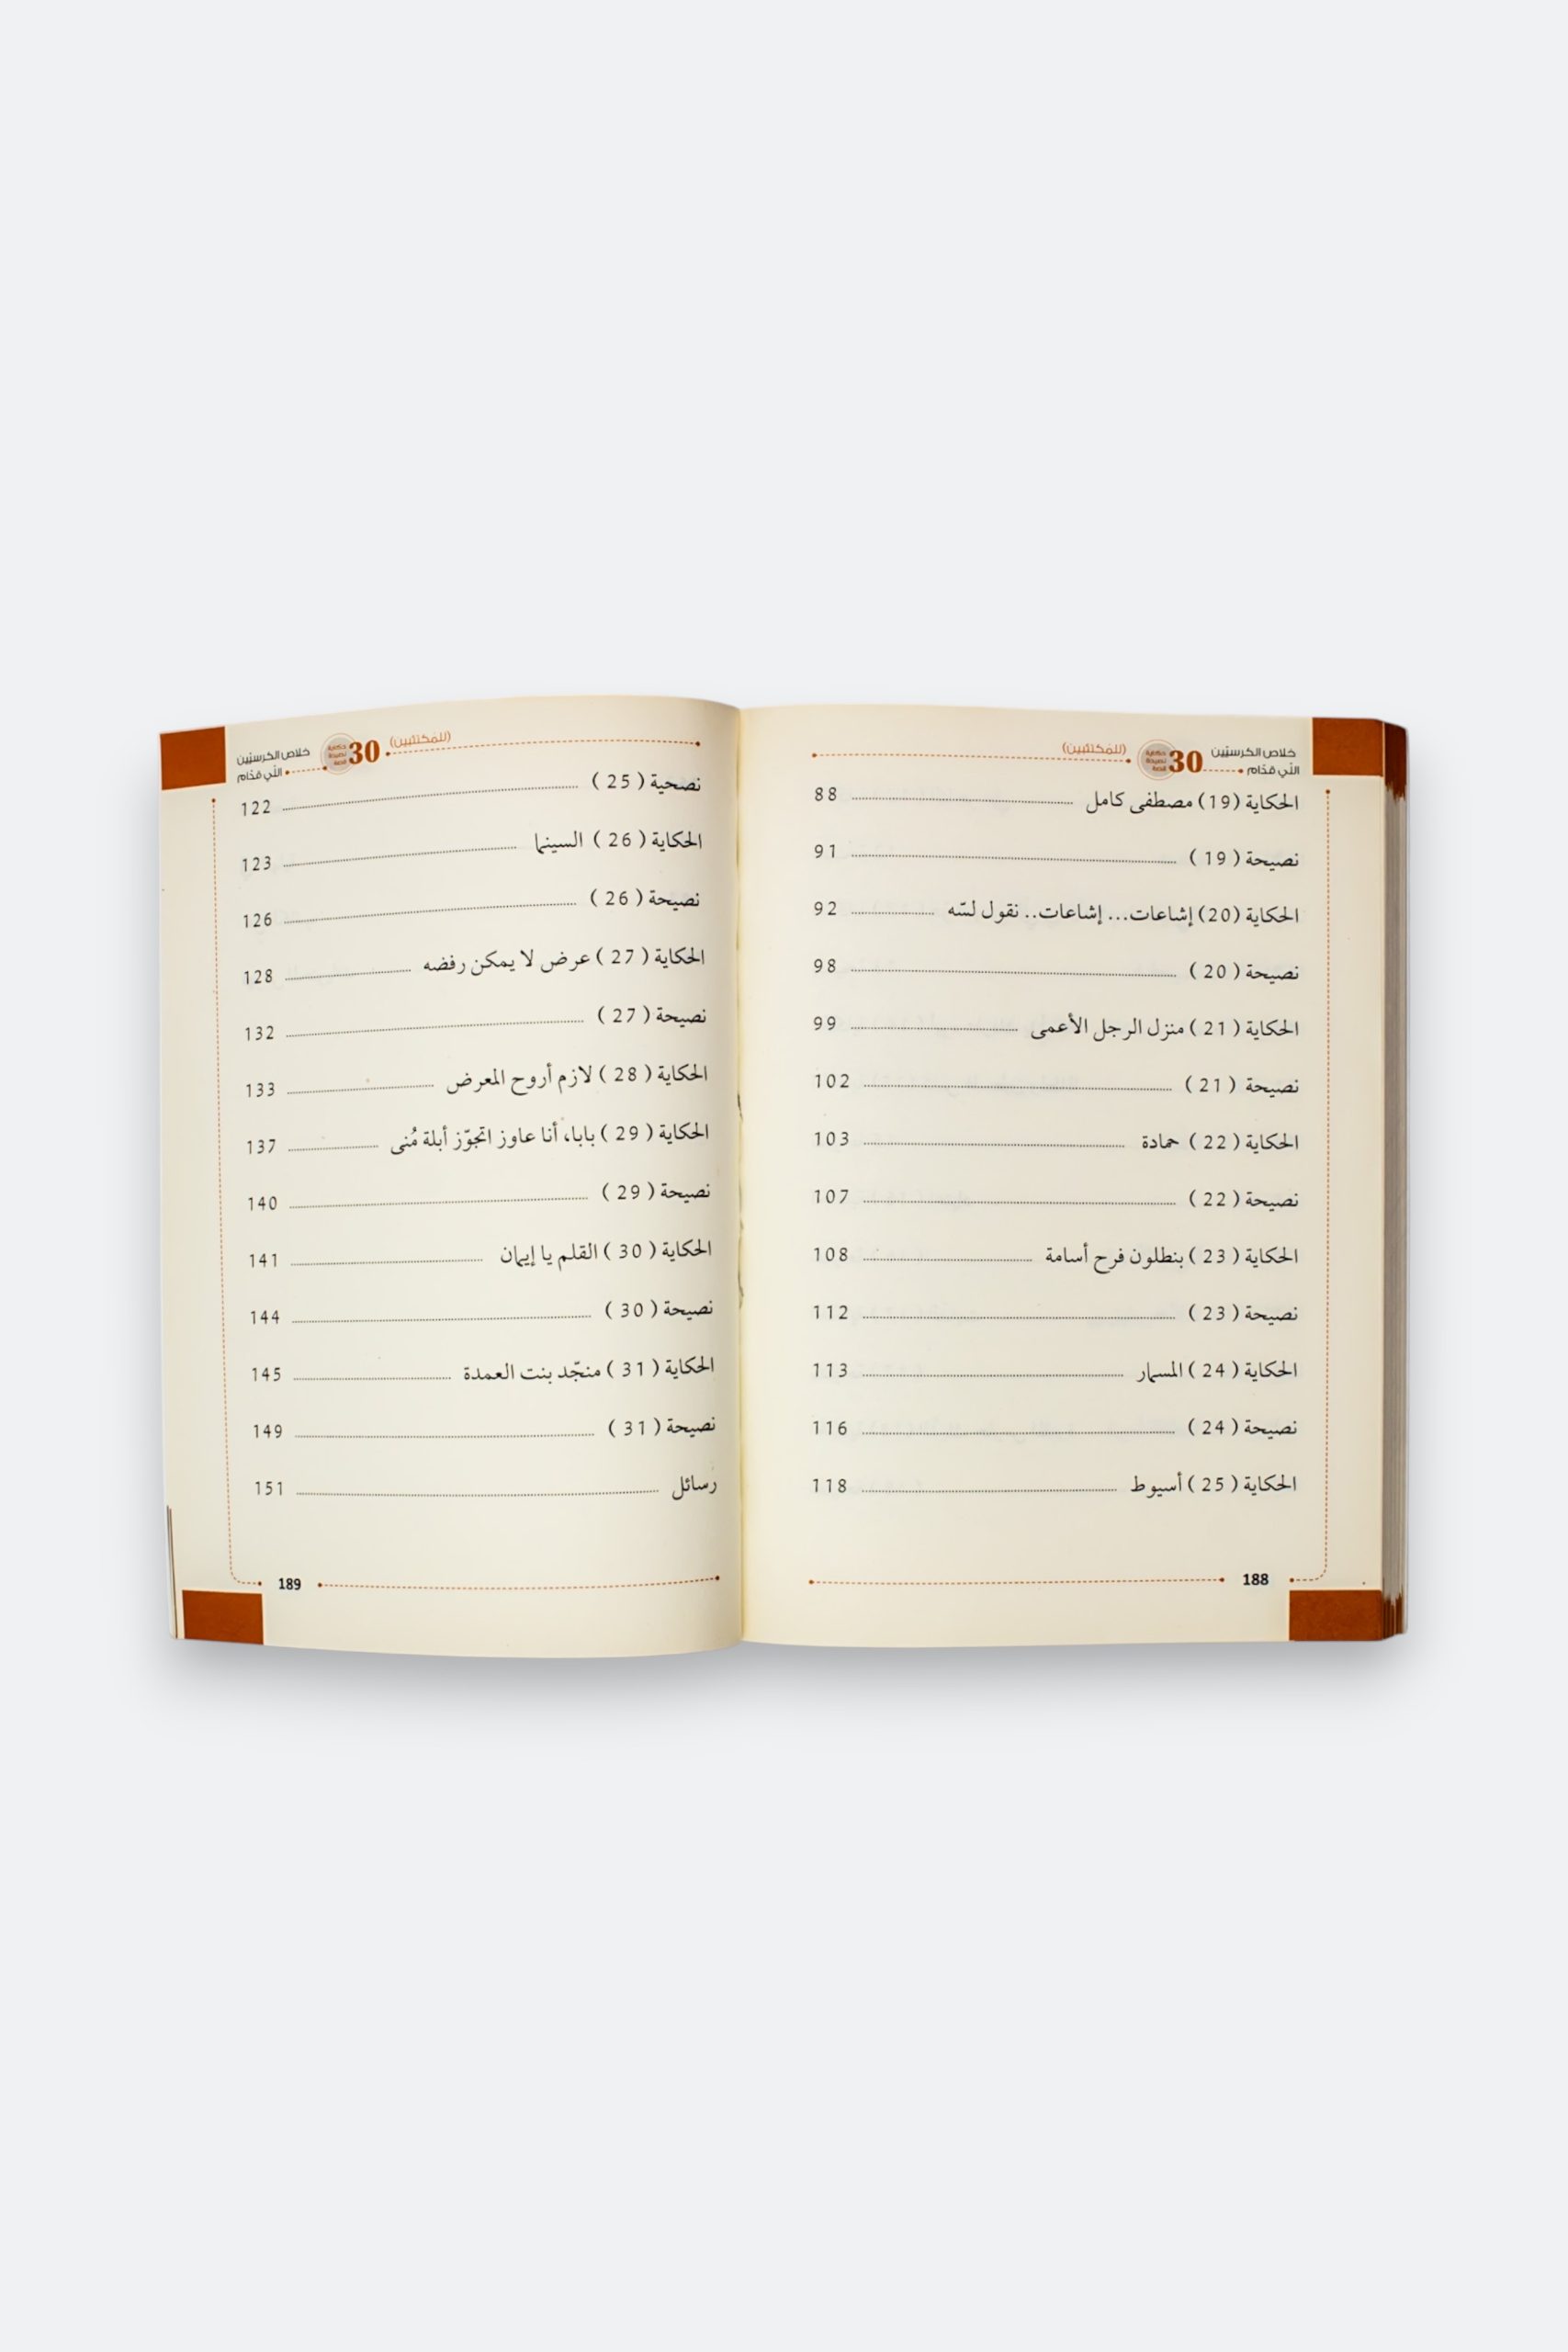 خلاص الكرسيّين
اللّي قدّام
30
حكاية
نصيحة
قصة
(للمُكتئبين)
الحكاية (19) مصطفى كامل 88
نصيحة ( 19 ) 91
الحكاية (20) إشاعات... إشاعات.. نقول لسّه 92
نصيحة ( 20 ) 98
الحكاية ( 21 ) منزل الرجل الأعمى 99
نصيحة ( 21 ) 102
الحكاية ( 22 ) حمادة 103
نصيحة ( 22 ) 107
الحكاية ( 23 ) بنطلون فرح أسامة 108
نصيحة ( 23 ) 112
الحكاية ( 24 ) المسمار 113
نصيحة ( 24 ) 116
الحكاية ( 25 ) أسيوط 118
188
خلاص الكرسيّين
اللّي قدّام
30
حكاية
نصيحة
قصة
(للمُكتئبين)
نصحية ( 25 ) 122
الحكاية ( 26 ) السينما 123
نصيحة ( 26 ) 126
الحكاية ( 27 ) عرض لا يمكن رفضه 128
نصيحة ( 27 ) 132
الحكاية ( 28 ) لازم أروح المعرض 133
الحكاية ( 29 ) بابا، أنا عاوز اتجوّز أبلة مُنى 137
نصيحة ( 29 ) 140
الحكاية ( 30 ) القلم يا إيمان 141
نصيحة ( 30 ) 144
الحكاية ( 31 ) منجّد بنت العمدة 145
نصيحة ( 31 ) 149
رسائل 151
189